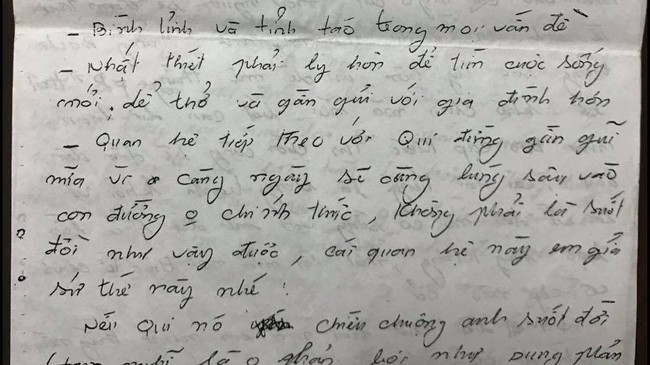 - Bình tĩnh và tỉnh táo trong mọi vấn đề
- Nhất thiết phải ly hôn để tìm cuộc sống
mới, dễ thở và gần gũi với gia đình hơn
- Quan hệ tiếp theo với Qui đừng gần gũi
nữa vì càng ngày sẽ càng lún sâu vào
con đường o chính thức, không phải là suốt
đời như vậy được, cái quan hệ này em giả
sử thế này nhé!
Nếu Qui nó chiều chuộng anh suốt đời